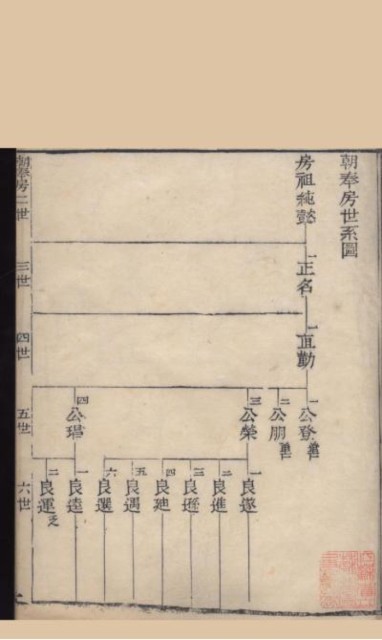 朝奉房世系圖
房祖純懿
一正名
一直勤
一公登
二公朋
三公榮
四公琩
一良遂
二良進
三良遜
四良迪
五良遇
六良選
一良逵
二良運
朝奉房二世
三世
四世
五世
六世